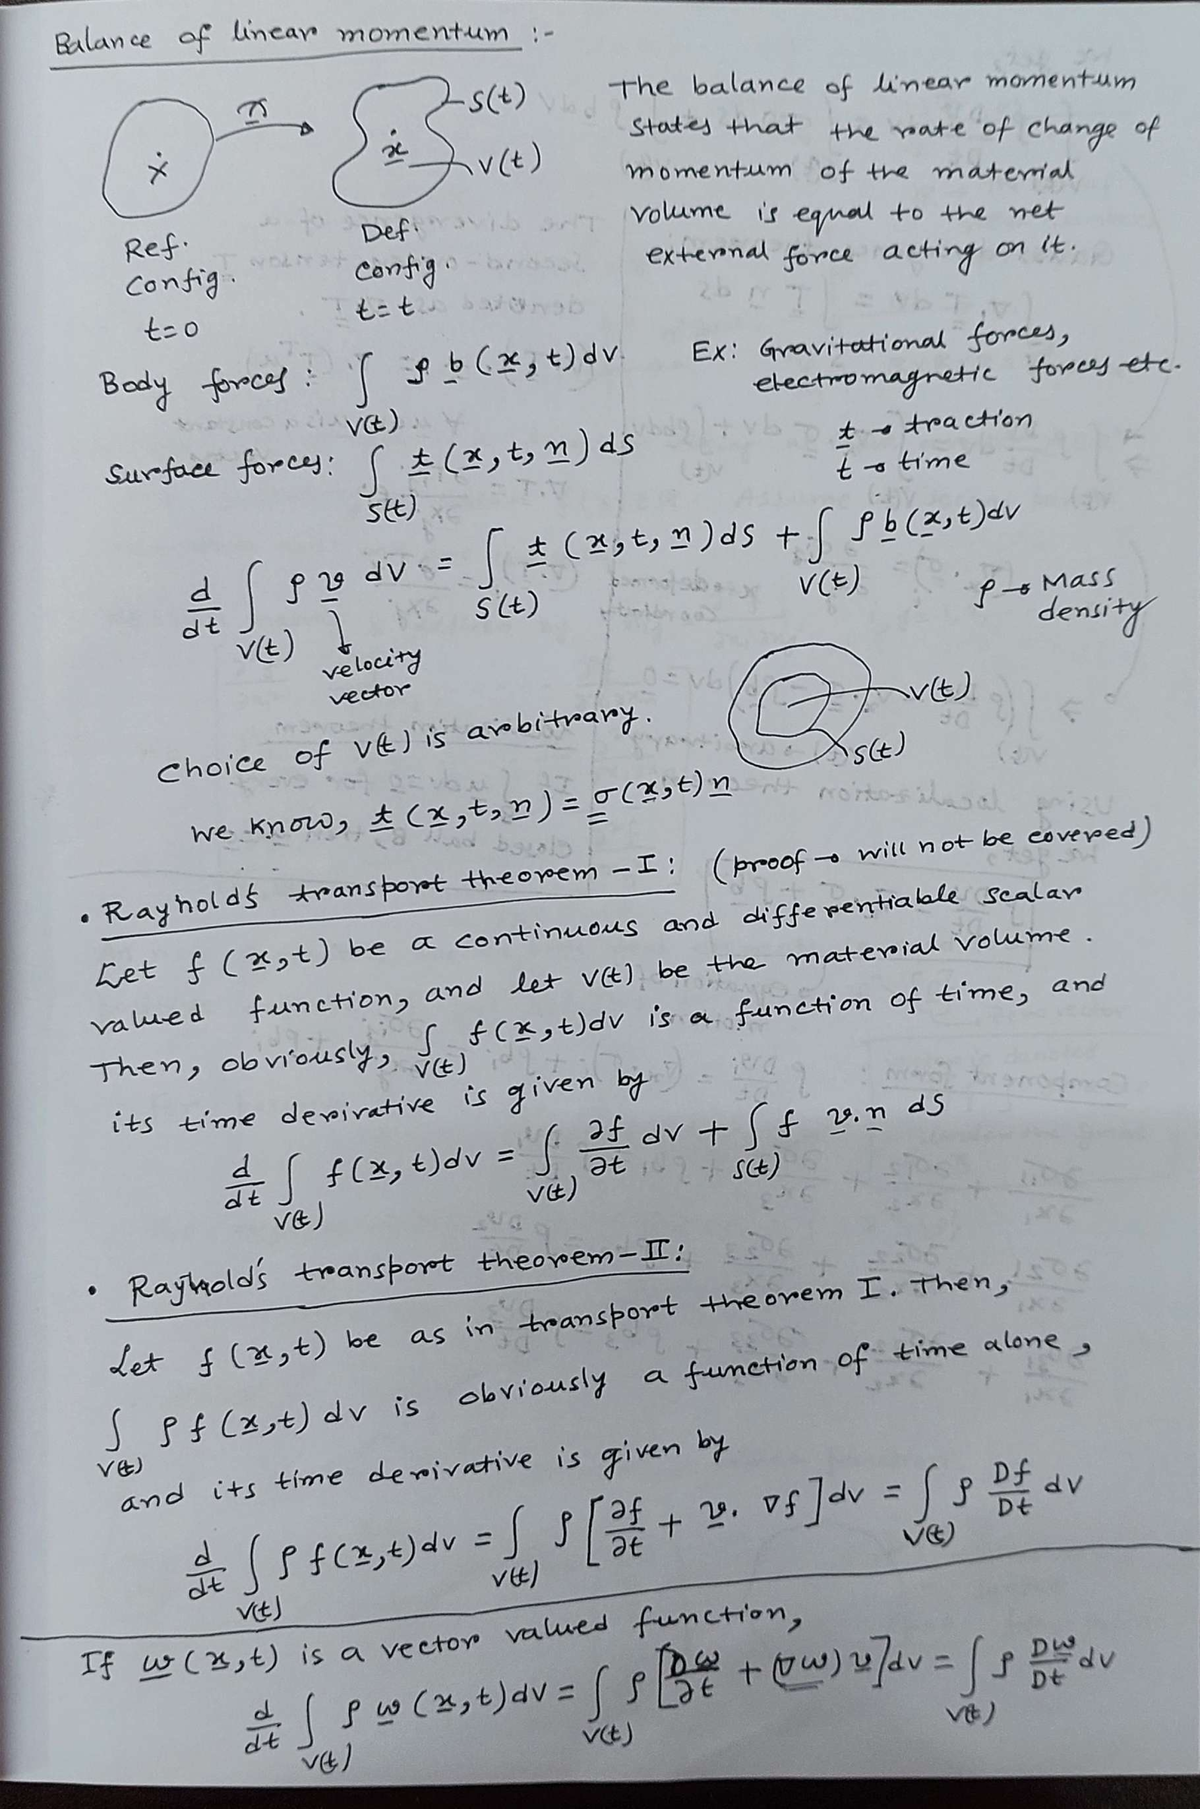 Balance of linear momentum :-
X
π
x
S(t)
V(t)
Ref.
Config.
t=0
Def.
Config.
t=t
The balance of linear momentum
states that the rate of change of
momentum of the material
volume is equal to the net
external force acting on it.
Body forces: ∫_V(t) ρ b (x, t) dv
Ex: Gravitational forces,
electromagnetic forces etc.
Surface forces: ∫_S(t) t (x, t, n) ds
t → traction
t → time
d/dt ∫_V(t) ρ v dv = ∫_S(t) t (x, t, n) ds + ∫_V(t) ρ b (x, t) dv
velocity
vector
ρ → Mass
density
V(t)
S(t)
choice of V(t) is arbitrary.
We know, t (x, t, n) = σ (x, t) n
• Rayhold's transport theorem - I: (proof → will not be covered)
Let f (x, t) be a continuous and differentiable scalar
valued function, and let V(t) be the material volume.
Then, obviously, ∫_V(t) f (x, t) dv is a function of time, and
its time derivative is given by
d/dt ∫_V(t) f (x, t) dv = ∫_V(t) ∂f/∂t dv + ∫_S(t) f v.n ds
• Raynold's transport theorem - II:
Let f (x, t) be as in transport theorem I. Then,
∫_V(t) ρ f (x, t) dv is obviously a function of time alone,
and its time derivative is given by
d/dt ∫_V(t) ρ f (x, t) dv = ∫_V(t) ρ [∂f/∂t + v. ∇f] dv = ∫_V(t) ρ Df/Dt dv
If w (x, t) is a vector valued function,
d/dt ∫_V(t) ρ w (x, t) dv = ∫_V(t) ρ [∂w/∂t + (∇w) v] dv = ∫_V(t) ρ Dw/Dt dv